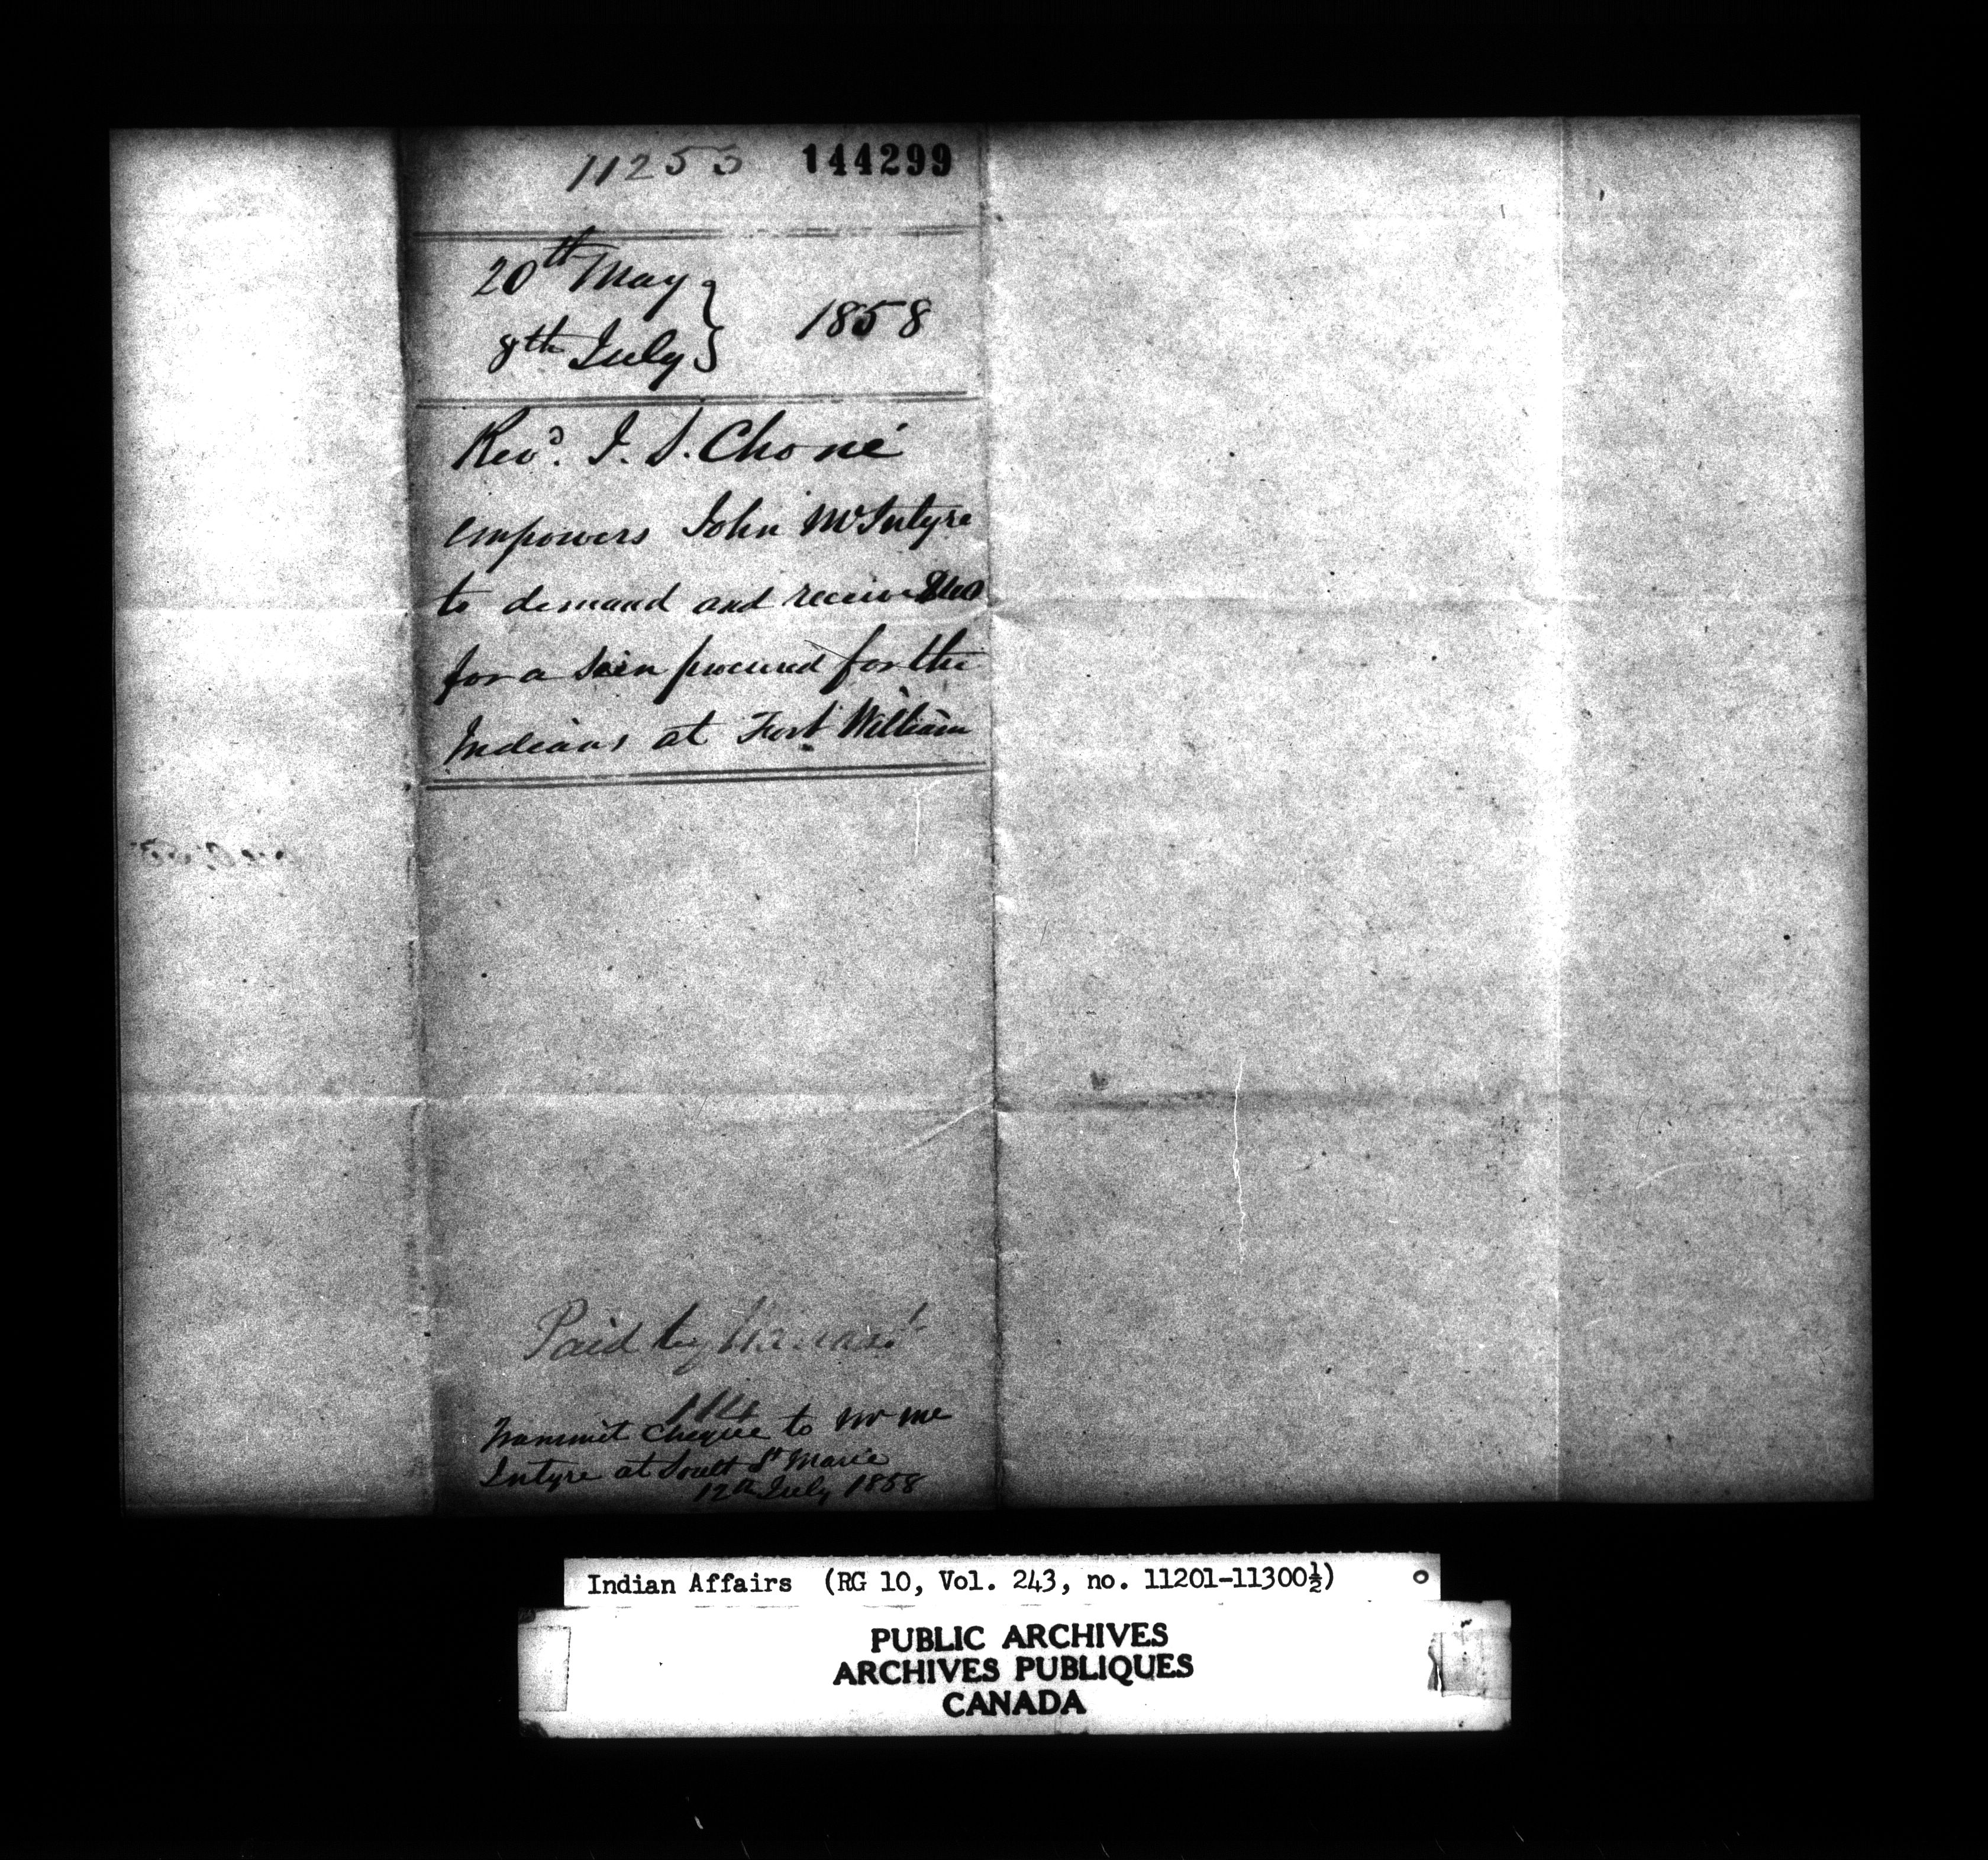 11253 144299
20th May
8th July } 1858
Revd. J. S. Choné
empowers John McIntyre
to demand and receive $40
for a Sein procured for the
Indians at Fort William
Paid by Warrant
114
Transmit Cheque to Mr Mc
Intyre at Soult St Marie
12th July 1858
Indian Affairs (RG 10, Vol. 243, no. 11201-11300½)
PUBLIC ARCHIVES
ARCHIVES PUBLIQUES
CANADA